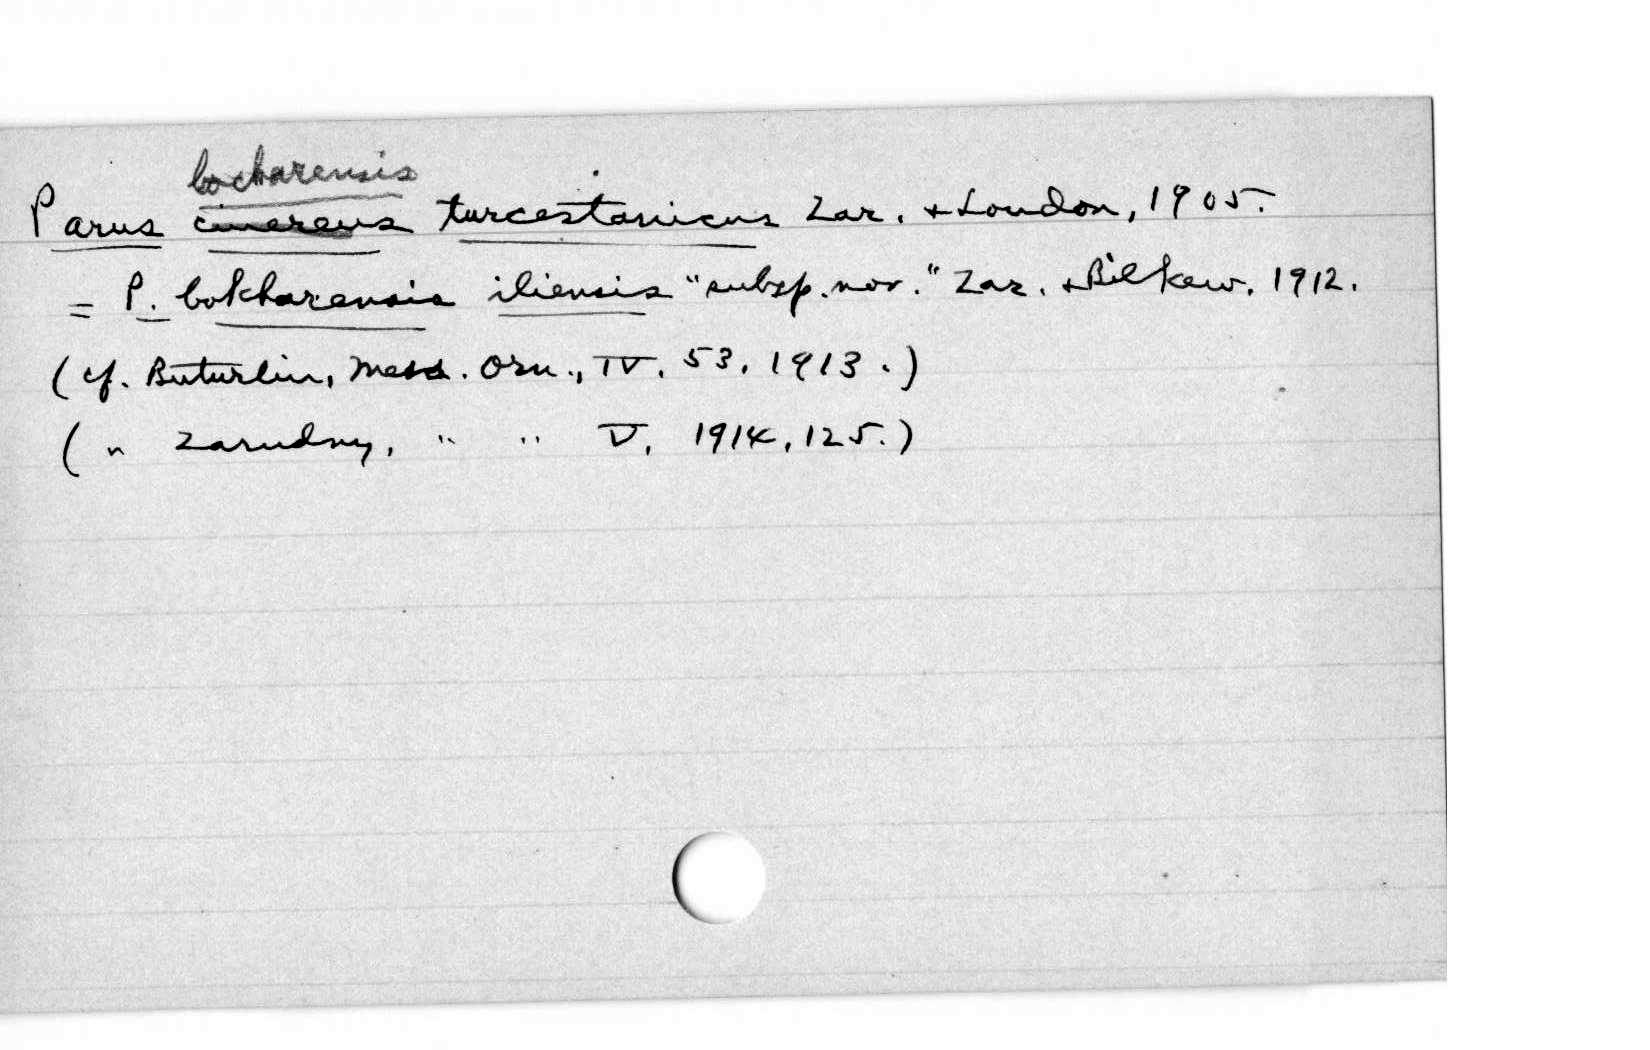 bocharensis
Parus cinereus turcestanicus Zar. + Loudon, 1905.
= P. bokharensis iliensis "subsp. nov." Zar. + Bilkew. 1912.
(cf. Buturlin, Mess. Orn., IV. 53, 1913.)
( " Zarudny, " " V, 1914, 125.)